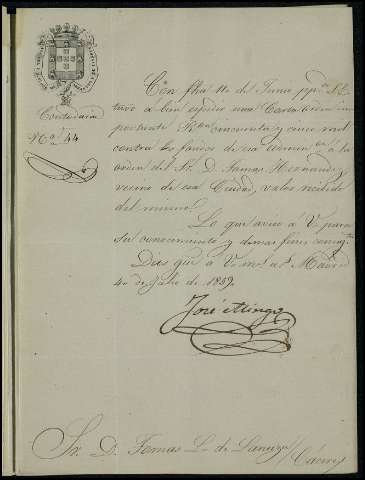 Contaduria
Nº 44
Con fha 11 de Junio pp. S.E.
tuvo a bien espedir una Carta orden im
portante Rvn cincuenta y cinco mil
contra los fondos de esa Admon a la
orden del Sr. D. Tomas Hernandez
vecino de esa Ciudad, valor recibido
del mismo.
Lo que aviso a V. para
su conocimiento y demas fines
Dios gue a V. ms. as. Madrid
4 de Julio de 1859.
José Mingo
Sr. D. Tomas L. de / Cáceres